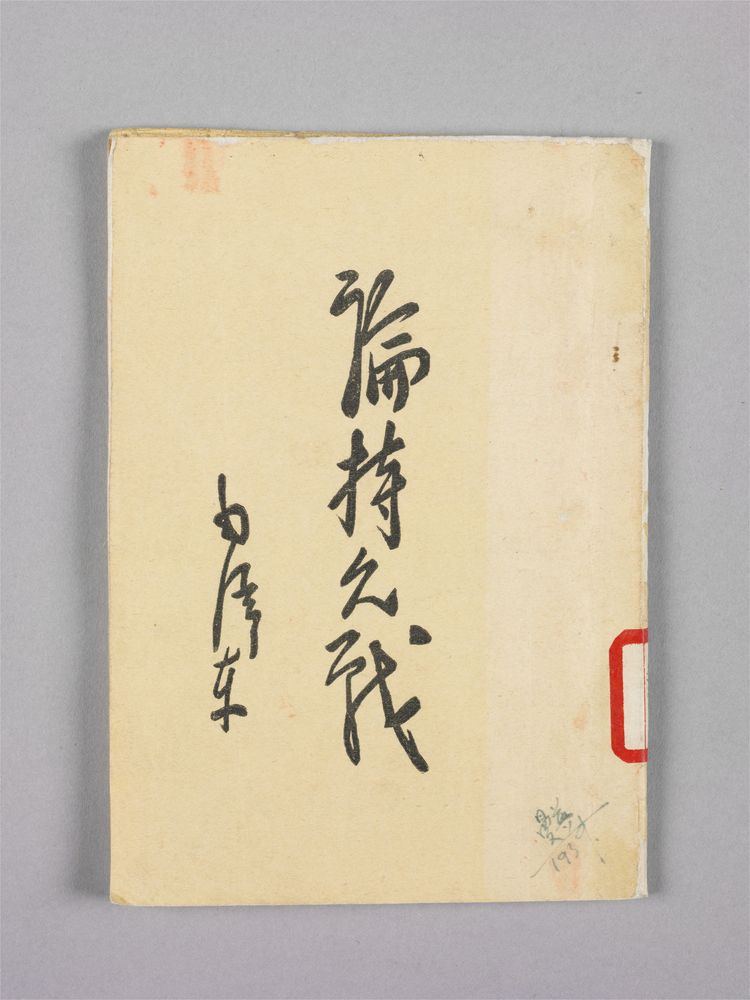 論持久戰
毛澤东
193